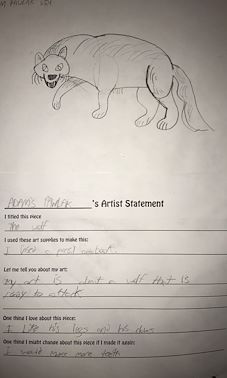 ADAM PAWLAK 's Artist Statement
I titled this piece
The wolf
I used these art supplies to make this:
I used a pencil
Let me tell you about my art:
my art is about a wolf that is
ready to attack.
One thing I love about this piece:
I like his legs and his claws
One thing I might change about this piece if I made it again:
I would make more teeth